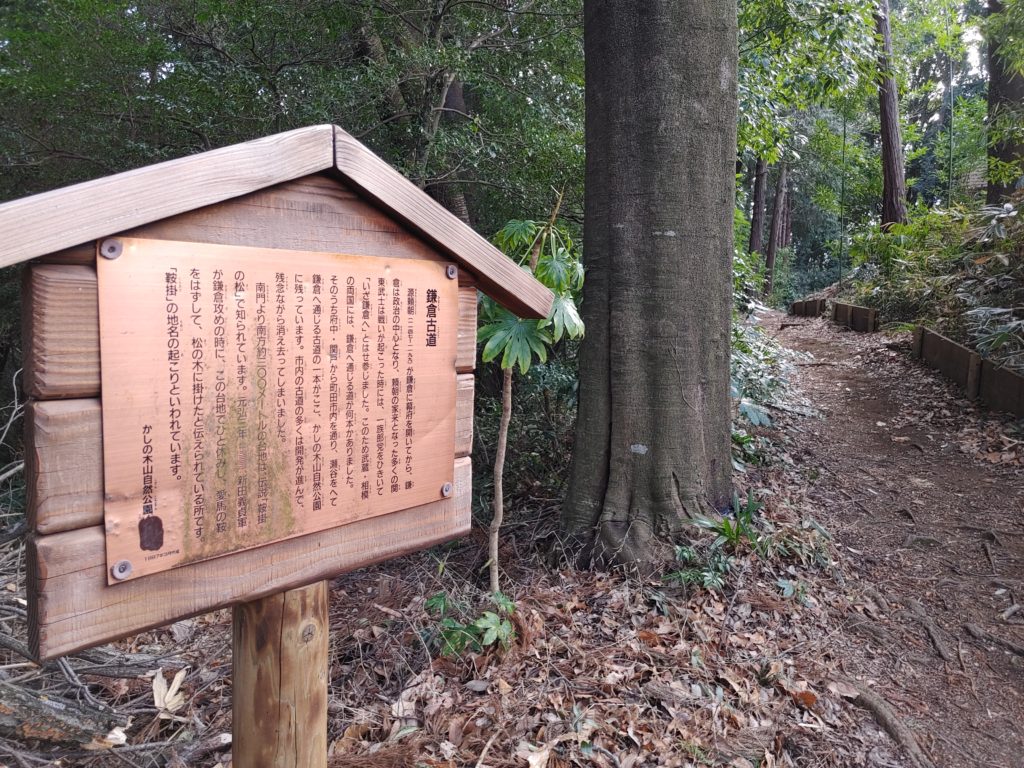 鎌倉古道
源頼朝(一一四七~一一九九)が鎌倉に幕府を開いてから、鎌
倉は政治の中心となり、頼朝の家来となった多くの関
東武士は戦いが起こった時には、一族郎党をひきいて
「いざ鎌倉へ」とはせ参じました。このため武蔵・相模
の両国には、鎌倉へ通じる道が何本かありました。
そのうち府中・関戸から町田市内を通り、瀬谷をへて
鎌倉へ通じる古道の一本がここ、かしの木山自然公園
に残っています。市内の古道の多くは開発が進んで、
残念ながら消え去ってしまいました。
南門より南方約二〇〇メートルの台地は、伝説「鞍掛
の松」で知られています。元弘三年 新田義貞軍
が鎌倉攻めの時に、この台地でひと休みし、愛馬の鞍
をはずして、松の木に掛けたと伝えられている所です。
「鞍掛」の地名の起こりといわれています。
かしの木山自然公園